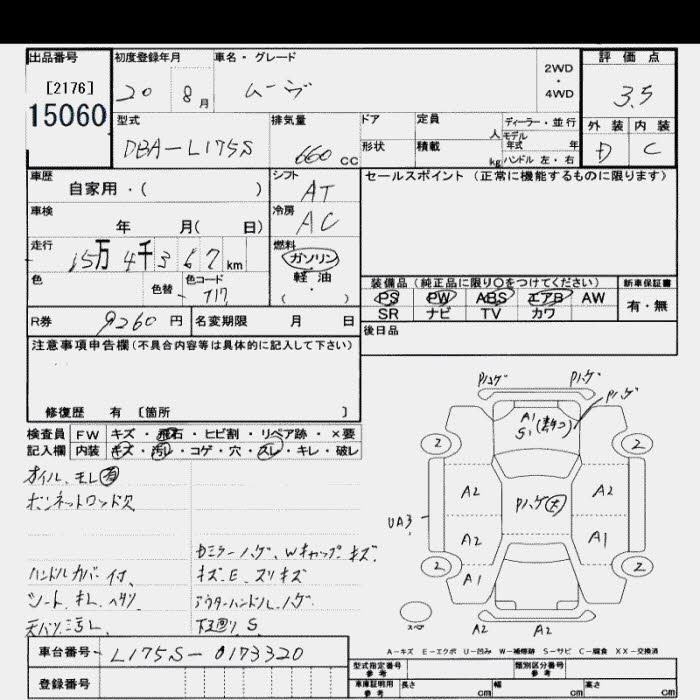 出品番号 初度登録年月 車名・グレード 評価点
[2176] 2WD・4WD
15060 20 8月 ムーヴ 3.5
型式 排気量 ドア 定員 人 ディーラー・並行 外装 内装
DBA-L175S 660 CC 形状 積載 kg モデル年式 年 ハンドル 左・右 D C
車歴 自家用・( ) シフト AT セールスポイント (正常に機能するものに限ります)
車検 年 月( 日) 冷房 AC
走行 15万 4千 3 6 7 km 燃料 ガソリン 軽油 ( ・ )
色 色替 色コード T17 装備品 (純正品に限り○をつけてください) 新車保証書
PS PW ABS エアB AW 有・無
SR ナビ TV カワ
R券 9260 円 名変期限 月 日 後日品
注意事項申告欄 (不具合内容等は具体的に記入して下さい)
修復歴 有 〔箇所 〕
検査員 FW キズ・飛石・ヒビ割・リペア跡・×要
記入欄 内装 キズ・汚レ・コゲ・穴・スレ・キレ・破レ
オイル、モレ 有
ボンネットロッド欠
Wキャップキズ
ハンドルカバー付、 キズ、E、スリキズ
シート、キレ、ヘタリ、 アウターハンドル、ハゲ、
天バリ汚レ 下回り S
Pハゲ Pハゲ
Pハゲ
A1
S1
2 2
A2 Pハゲ 大 A2
UA3
A2 A1
2 A1 2
スペア A2 A2
A-キズ E-エクボ U-凹み W-補修跡 S-サビ C-腐食 XX-交換済
車台番号 L175S-0173320 型式指定番号 参考 類別区分番号 参考
登録番号 車庫証明用 参考 長さ cm 幅 cm 高さ cm